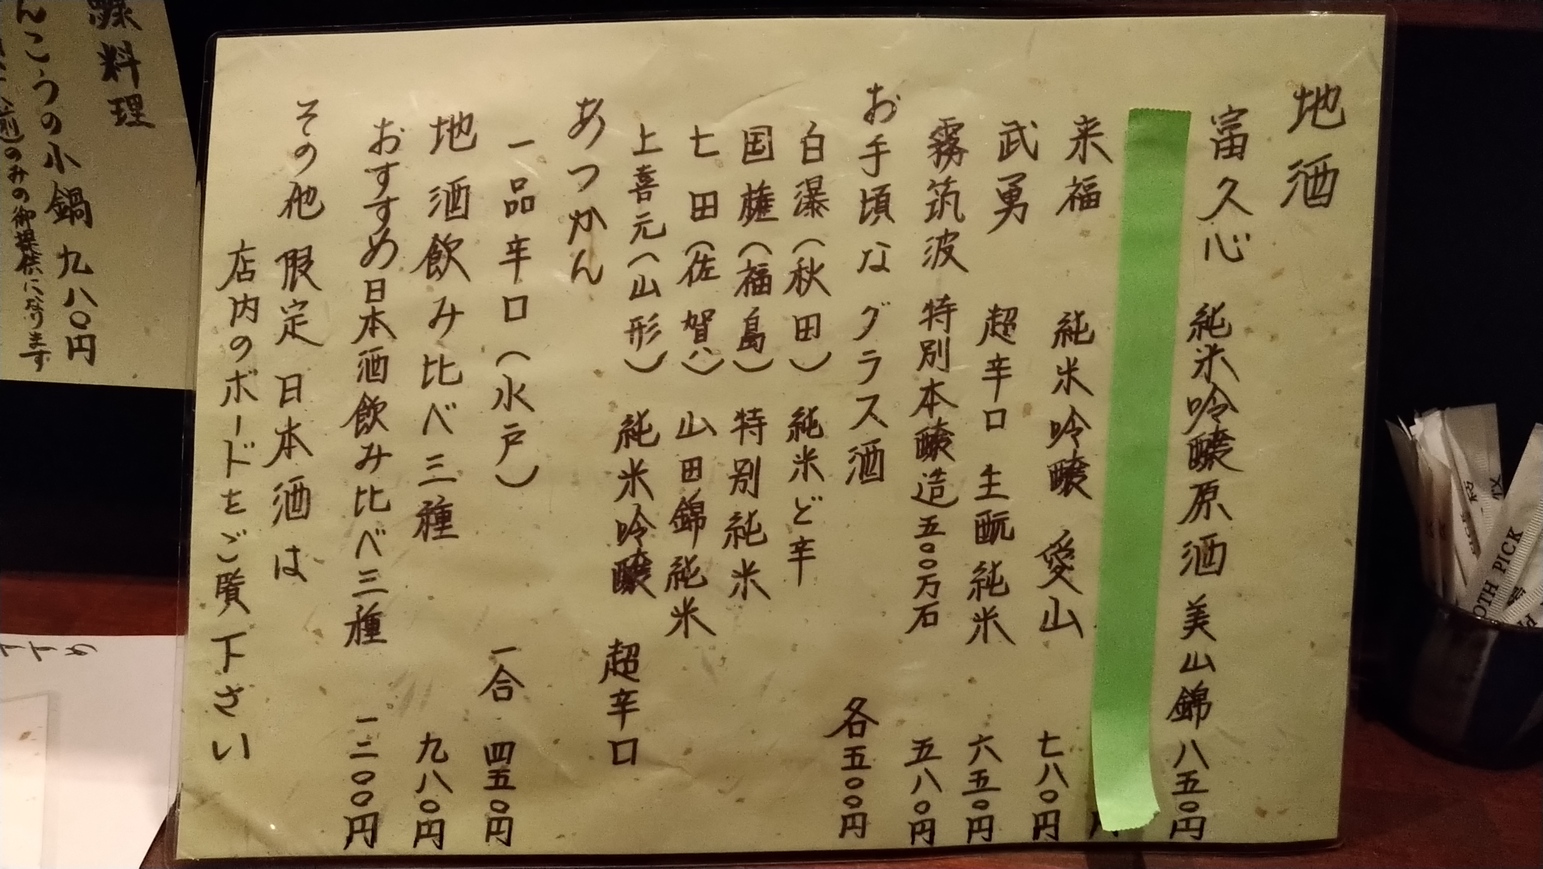 地酒
富久心 純米吟醸原酒 美山錦 八五〇円
来福 純米吟醸 愛山 七八〇円
武勇 超辛口 生酛純米 六五〇円
霧筑波 特別本醸造 五〇〇万石 五八〇円
お手頃なグラス酒 各五〇〇円
白瀑(秋田) 純米ど辛
国権(福島) 特別純米
七田(佐賀) 山田錦純米
上喜元(山形) 純米吟醸 超辛口
あつかん
一品辛口(水戸) 一合 四五〇円
地酒飲み比べ三種 九八〇円
おすすめ日本酒飲み比べ三種 一二〇〇円
その他 限定 日本酒は
店内のボードをご覧下さい
料理
んこうの小鍋 九八〇円
前のみの御提供になります
OTH PICK